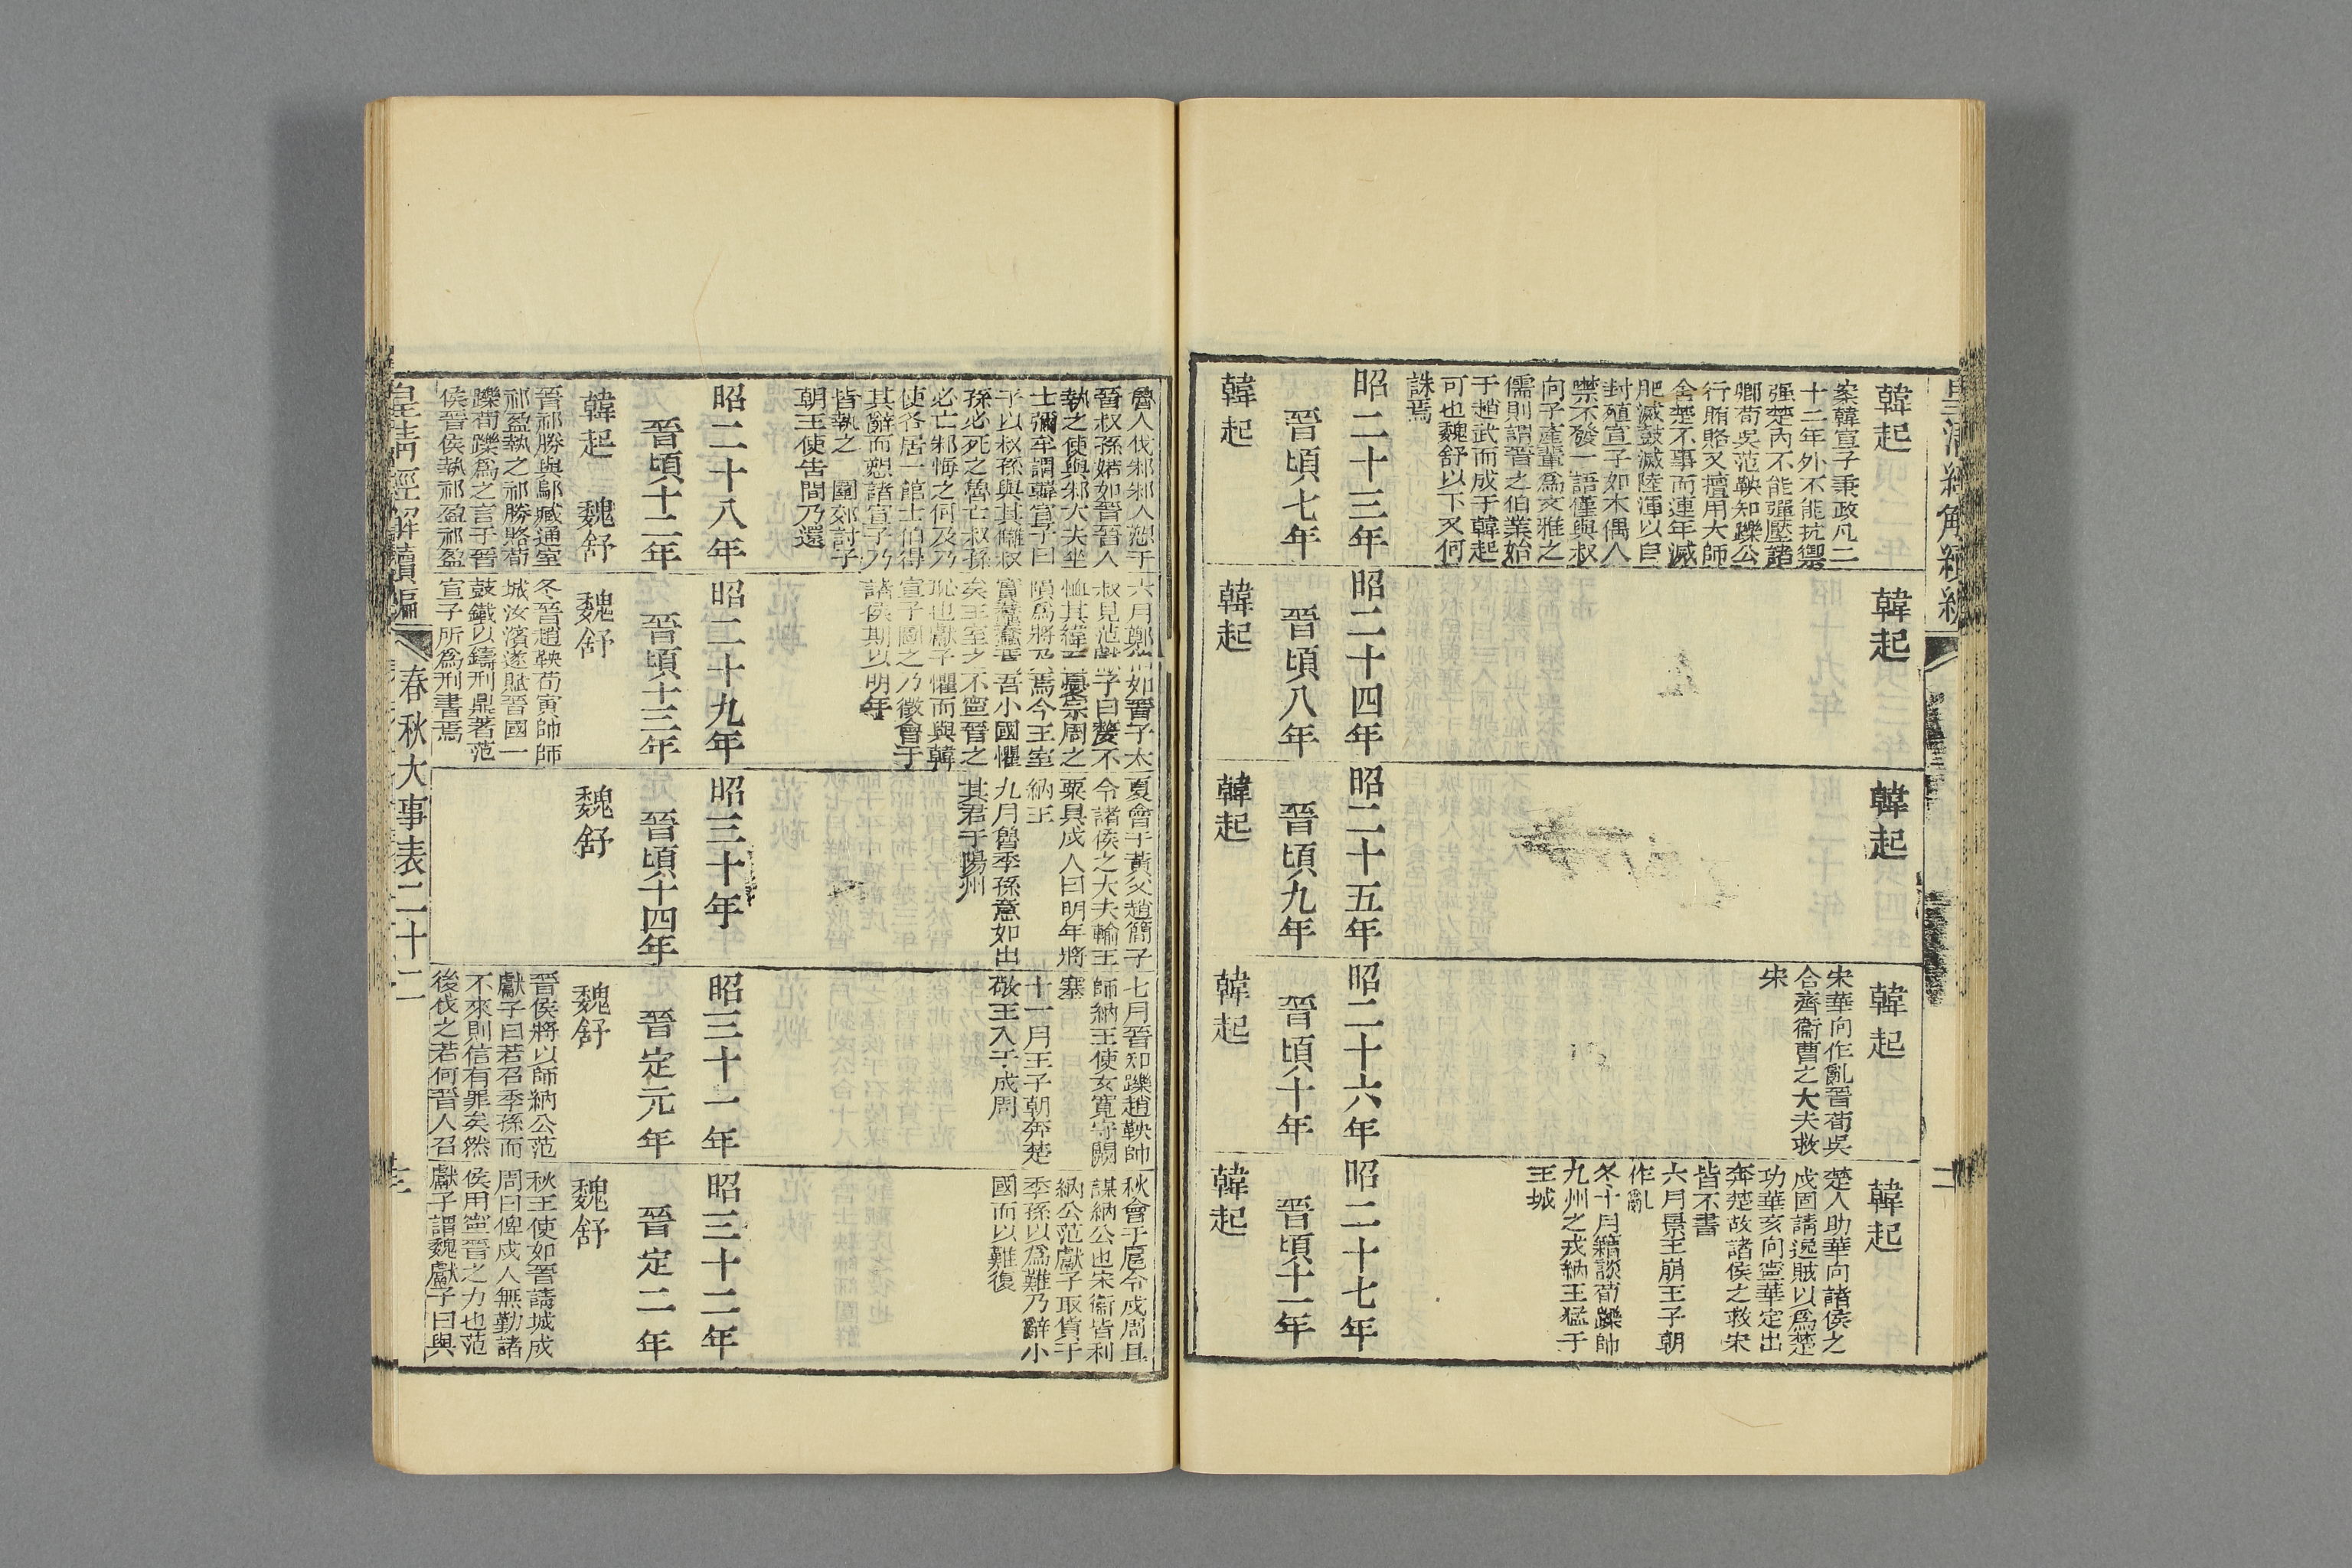 韓起
案韓宣子秉政凡二
十二年外不能抗禦
强楚內不能彈壓諸
卿荀吳范鞅知躒公
行賄賂又擅用大師
舍楚不事而連年滅
肥滅鼓滅陸渾以自
封殖宣子如木偶人
噤不發一語僅與叔
向子產輩爲文雅之
儒則謂晉之伯業始
于趙武而成于韓起
可也魏舒以下又何
誅焉
昭二十三年
晉頃七年
韓起
韓起
昭二十四年
晉頃八年
韓起
韓起
昭二十五年
晉頃九年
韓起
韓起
宋華向作亂晉荀吳
合齊衞曹之大夫救
宋
昭二十六年
晉頃十年
韓起
韓起
楚人助華向諸侯之
戍固請逸賊以爲楚
功華亥向寧華定出
奔楚故諸侯之救宋
皆不書
六月景王崩王子朝
作亂
冬十月籍談荀躒帥
九州之戎納王猛于
王城
昭二十七年
晉頃十一年
韓起
魯人伐邾邾人愬于
晉叔孫婼如晉晉人
執之使與邾大夫坐
士彌牟謂韓宣子曰
子以叔孫與其讎叔
孫必死之魯亡叔孫
必亡邾悔之何及乃
使各居一館士伯得
其辭而愬諸宣子乃
皆執之 圍郊討子
朝王使告閒乃還
昭二十八年
晉頃十二年
韓起 魏舒
晉祁勝與鄔臧通室
祁盈執之祁勝賂荀
躒荀躒爲之言于晉
侯晉侯執祁盈祁盈
六月鄭伯如晉子太
叔見范獻子曰嫠不
恤其緯而憂宗周之
隕爲將及焉今王室
實蠢蠢焉吾小國懼
矣王室之不寧晉之
恥也獻子懼而與韓
宣子圖之乃徵會于
諸侯期以明年
昭二十九年
晉頃十三年
魏舒
冬晉趙鞅荀寅帥師
城汝濱遂賦晉國一
鼓鐵以鑄刑鼎著范
宣子所爲刑書焉
夏會于黃父趙簡子
令諸侯之大夫輸王
粟具戍人曰明年將
納王
九月魯季孫意如出
其君于陽州
昭三十年
晉頃十四年
魏舒
七月晉知躒趙鞅帥
師納王使女寬守闕
塞
十一月王子朝奔楚
敬王入于成周
昭三十一年
晉定元年
魏舒
晉侯將以師納公范
獻子曰若召季孫而
不來則信有罪矣然
後伐之若何晉人召
秋會于扈令戍周且
謀納公也宋衞皆利
納公范獻子取貨于
季孫以爲難乃辭小
國而以難復
昭三十二年
晉定二年
魏舒
秋王使如晉請城成
周曰俾戍人無勤諸
侯用寧晉之力也范
獻子謂魏獻子曰與
皇清經解續編 春秋大事表二十二